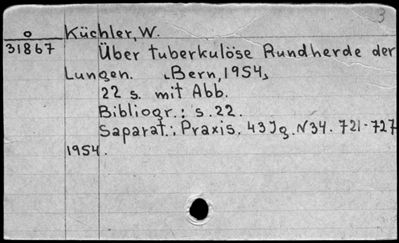 3
o Küchler, W.
31867 Über tuberkulöse Rundherde der
Lungen. (Bern, 1954)
22 s. mit Abb.
Bibliogr.: s. 22.
Saparat.: Praxis. 43 Jg. N34. 721-727
1954.